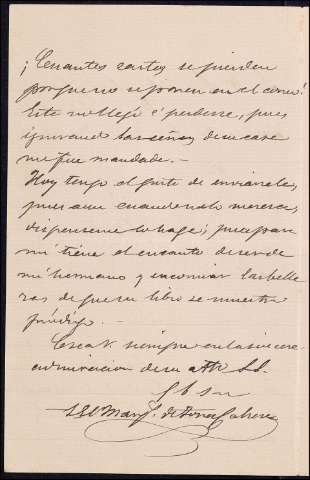 ¡Cuantas cartas se pierden
porque no se ponen en el correo!
Esta no llegó á perderse, pues
ignorando las señas de su casa
no fue mandada.—
Hoy tengo el gusto de enviarsela,
pues aun cuando nada merece,
dispenseme lo haga; pues para
mi tiene el encanto de ser de
mi hermano y encomiar las belle
zas de que su libro se muestra
pródigo.—
Crea V. siempre en la sincera
admiracion de su atto S.S.
q b s m
Marq. de Cabrera